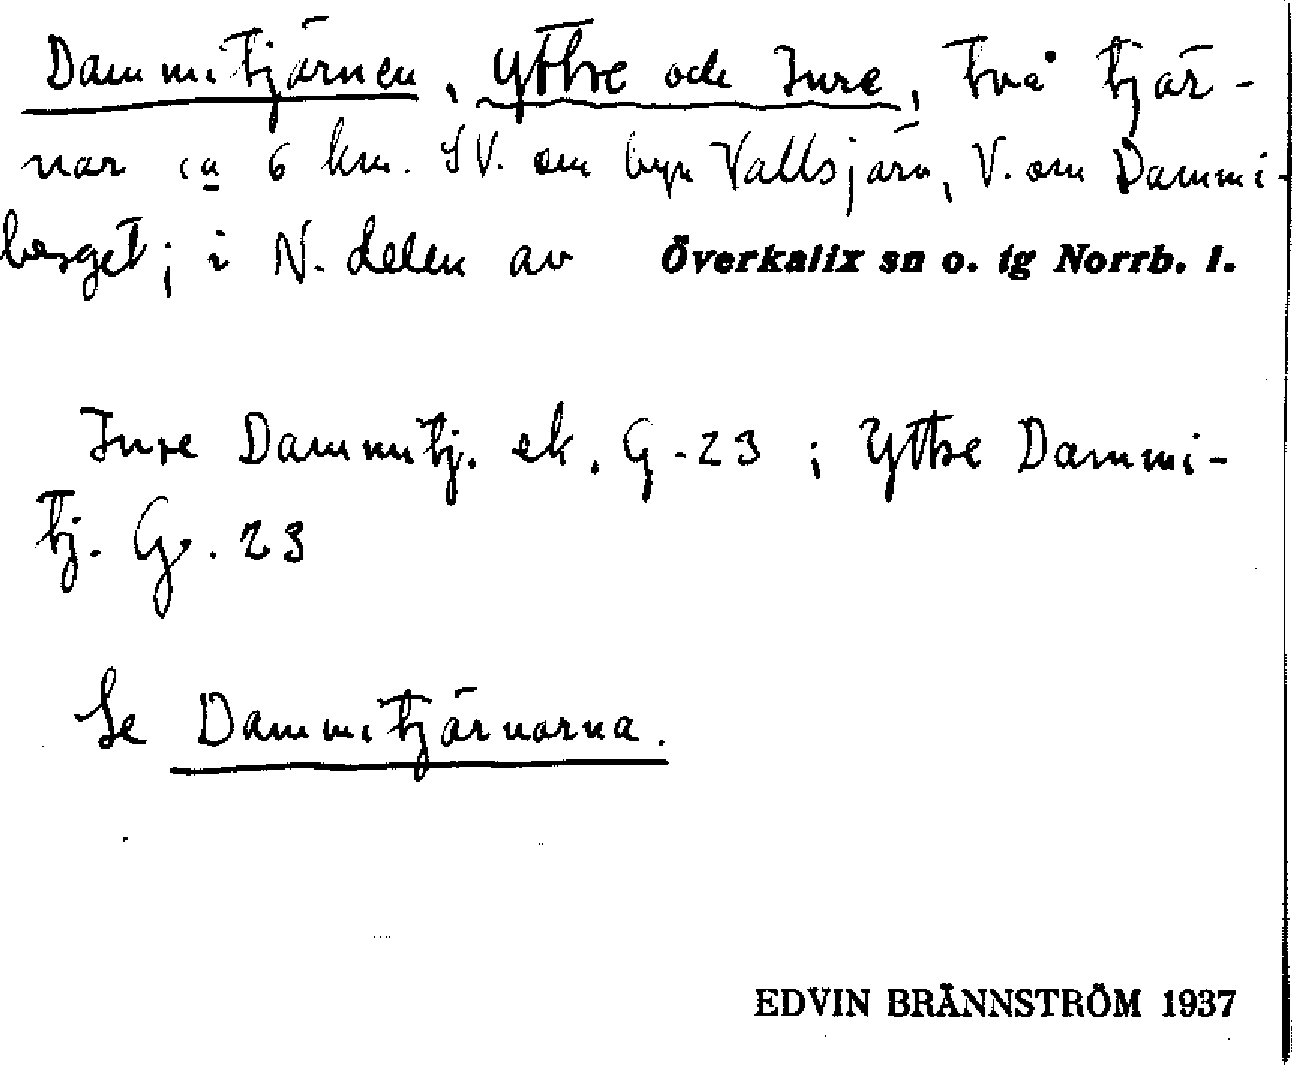 Dammitjärnen, Yttre och Inre, två tjär-
nar ca 6 km. SV. om byn Vallsjärn, V. om Dammi-
berget; i N. delen av Överkalix sn o. tg Norrb. l.
Inre Dammitj. ek. G-23; Yttre Dammi-
tj. G. 23
Se Dammitjärnarna.
EDVIN BRÄNNSTRÖM 1937